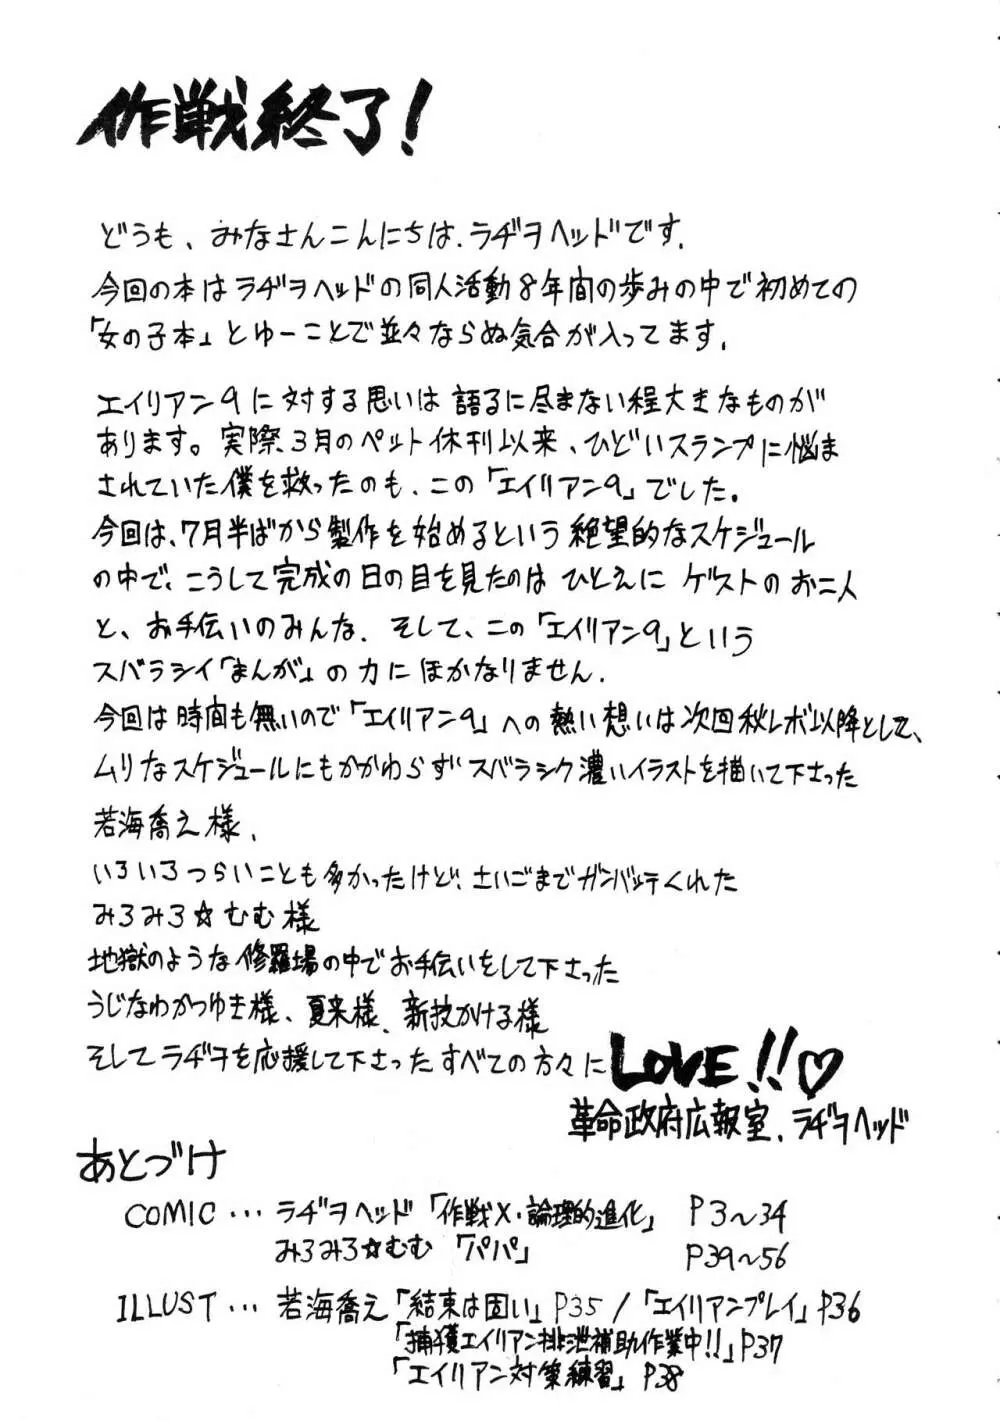 作戦終了！
どうも、みなさんこんにちは、ラヂヲヘッドです。
今回の本はラヂヲヘッドの同人活動8年間の歩みの中で初めての
「女の子本」とゆーことで並々ならぬ気合が入ってます。
エイリアン9に対する思いは語るに尽きない程大きなものが
あります。実際3月のペット休刊以来、ひどいスランプに悩ま
されていた僕を救ったのも、この「エイリアン9」でした。
今回は、7月半ばから製作を始めるという絶望的なスケジュール
の中で、こうして完成の日の目を見たのはひとえにゲストのお二人
と、お手伝いのみんな、そして、この「エイリアン9」という
スバラシイ「まんが」の力にほかなりません。
今回は時間も無いので「エイリアン9」への熱い想いは次回秋レボ以降として、
ムリなスケジュールにもかかわらずスバラシク濃いイラストを描いて下さった
若海喬え様、
いろいろつらいことも多かったけど、さいごまでガンバッテくれた
みろみろ☆むむ様
地獄のような修羅場の中でお手伝いをして下さった
うじなわかつゆき様、夏来様、新技かける様
そしてラヂヲを応援して下さったすべての方々に LOVE!!♡
革命政府広報室、ラヂヲヘッド
あとづけ
COMIC … ラヂヲヘッド「作戦X・論理的進化」 P3〜34
みろみろ☆むむ「パパ」 P39〜56
ILLUST … 若海喬え「結束は固い」P35 / 「エイリアンプレイ」P36
「捕獲エイリアン排泄補助作業中!!」P37
「エイリアン対策練習」P38